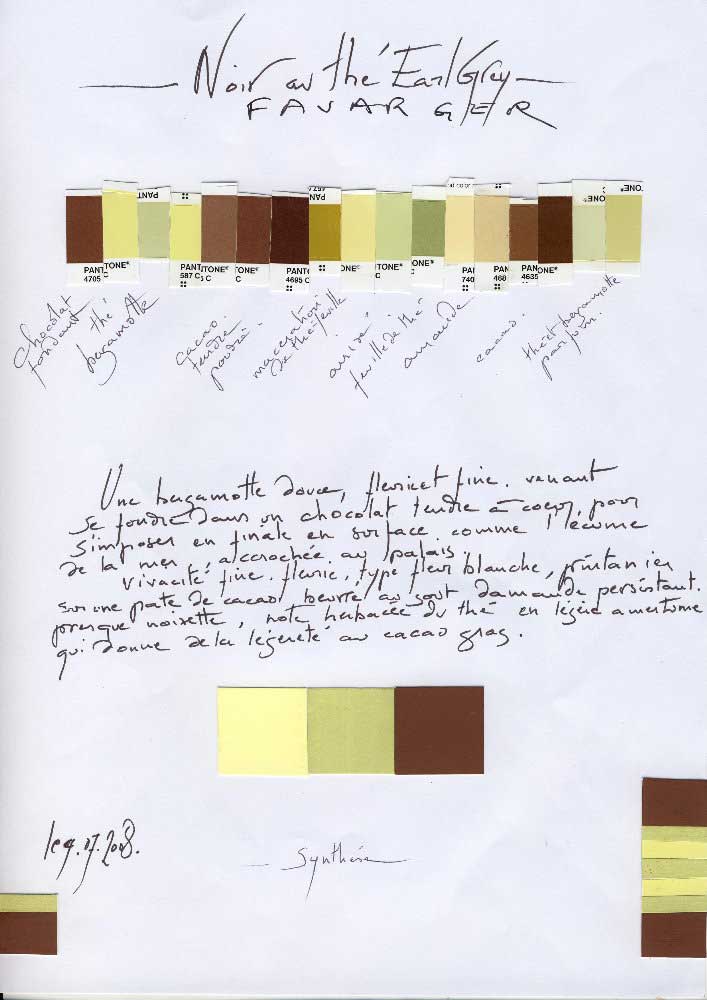 Noir au thé Earl Grey
FAVARGER
PANT
4705
TONE®
PANT
PANT
587 C
TONE®
C
TONE®
C
PANT
4695 C
TONE®
TONE®
C
TONE®
PANT
740
PANT
468
PANT
4635
TONE®
ONE®
ONE®
Chocolat
fondant
thé
bergamotte
cacao
tendre
poudré
macération
de thé feuille
anisé
feuille de thé
amande
cacao.
thé et bergamotte
parfum.
Une bergamotte douce, fleurie et fine. venant
se fondre dans un chocolat tendre à coeur, pour
s'imposer en finale en surface. comme l'écume
de la mer, accrochée au palais.
Vivacité fine. fleurie, type fleur blanche, printanier
sur une pate de cacao beurré au gout damande persistant.
presque noisette, note herbacée du thé en légère amertume
qui donne de la légereté au cacao gras.
le 9.07.2008.
Synthèse